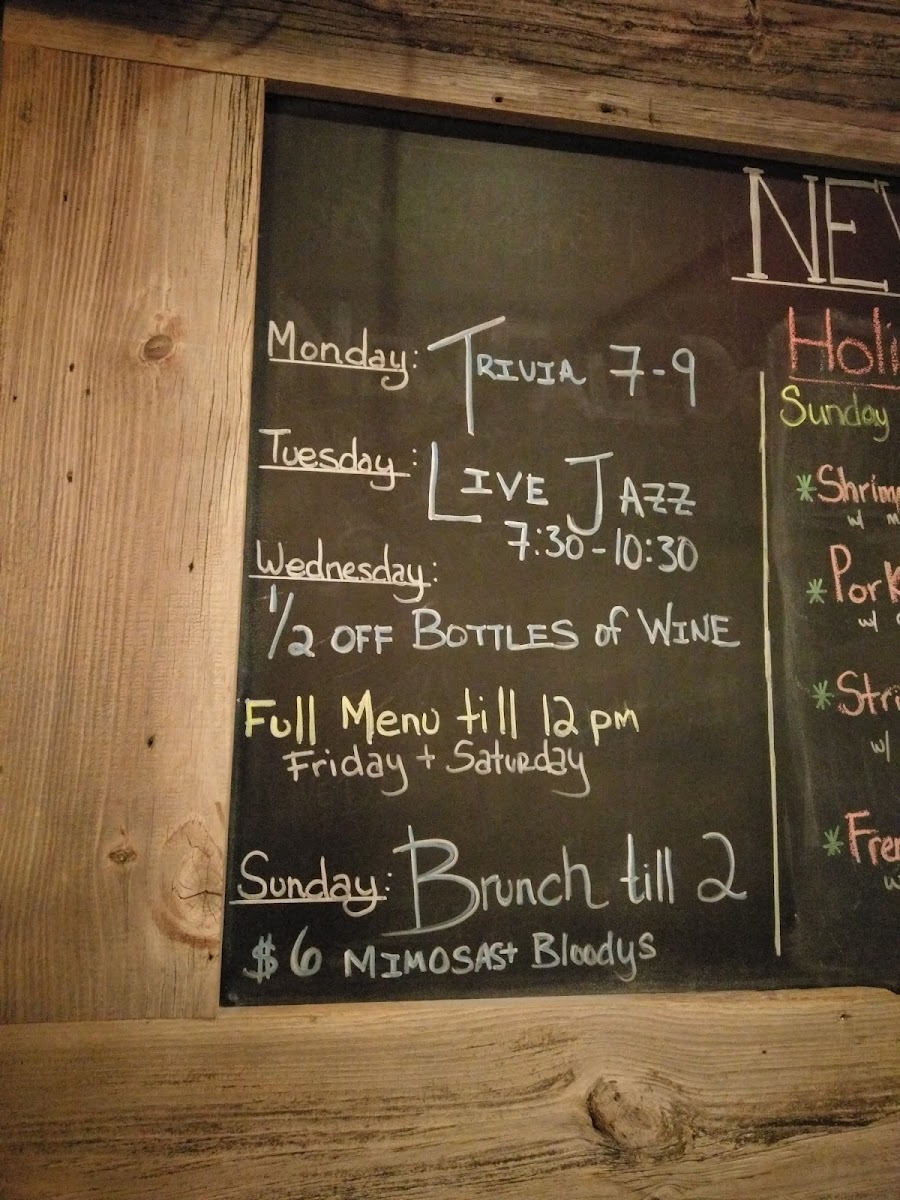 Monday: TRIVIA 7-9
Tuesday: LIVE JAZZ
7:30-10:30
Wednesday:
1/2 OFF BOTTLES of WINE
Full Menu till 12pm
Friday + Saturday
Sunday: Brunch till 2
$6 MIMOSAS + Bloodys
Sunday
w/
w/
w/